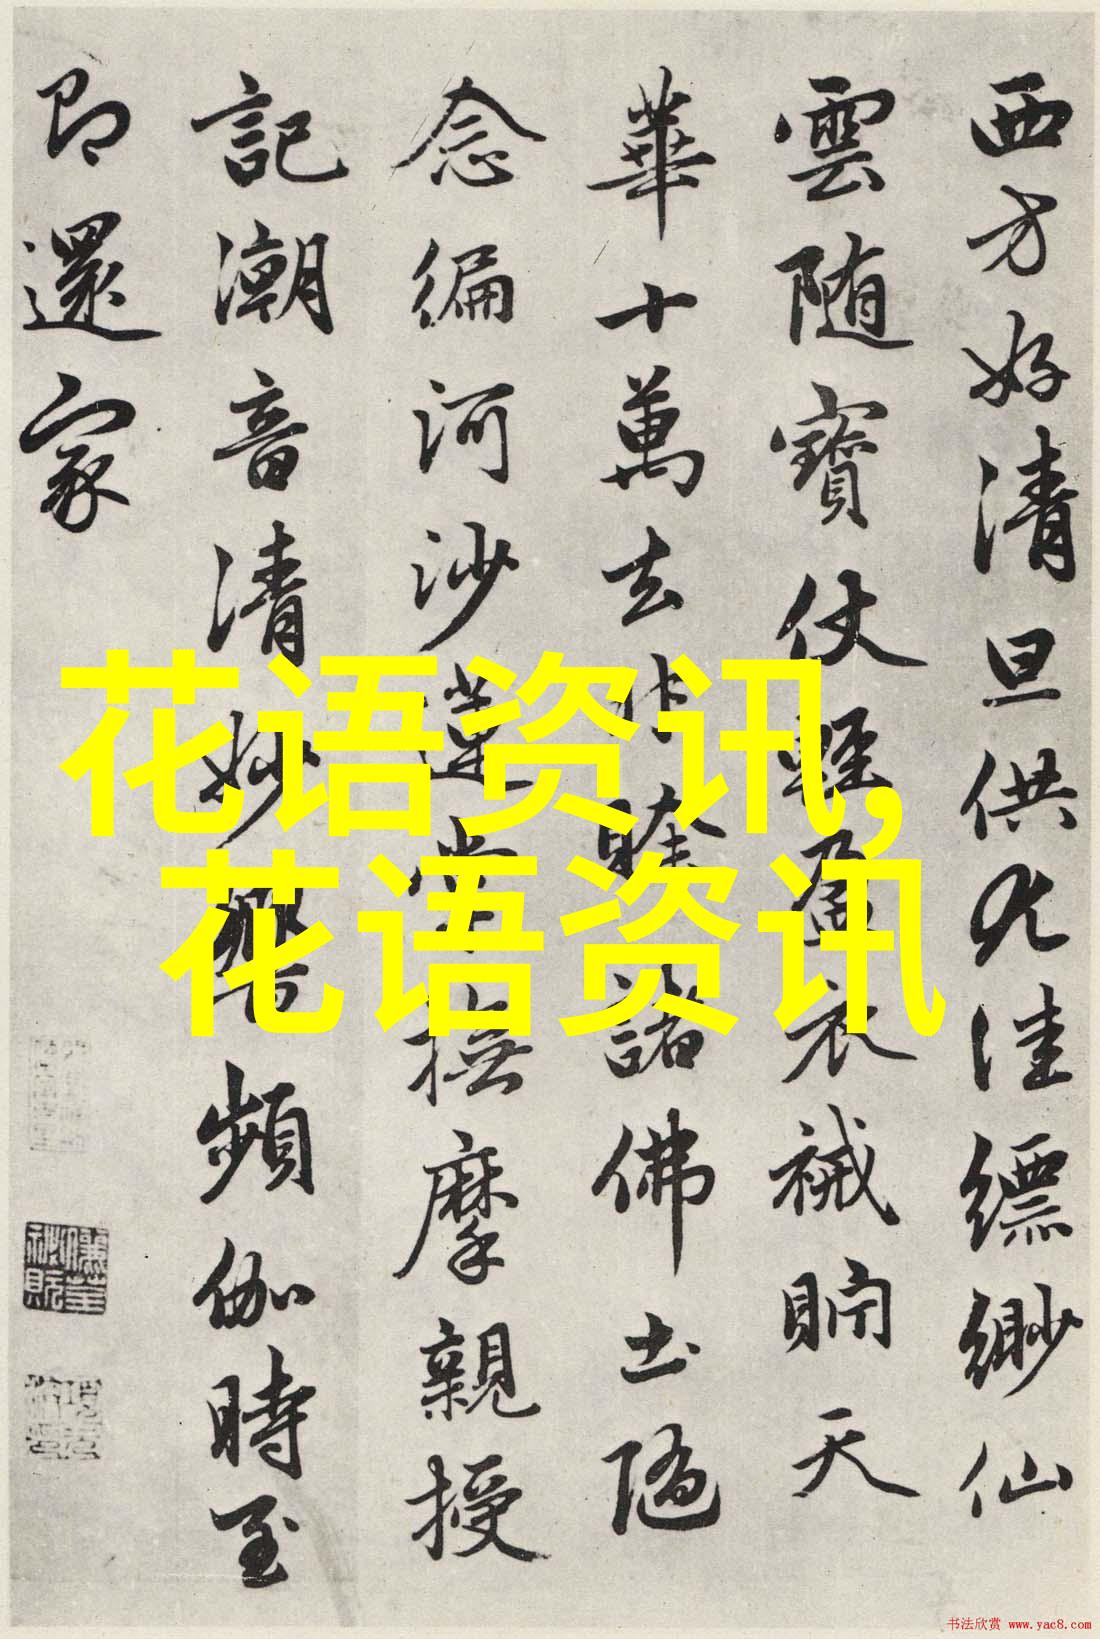 西方好清旦供尤佳縹緲仙
雲随寶仗輕盈衣祴貯天
華十萬去非賖諸佛土随
念編河沙蓮掌撫摩親授
記潮音清妙響頻伽時至
即還家
花语资讯,
花语资讯
书法欣赏 www.yac8.com